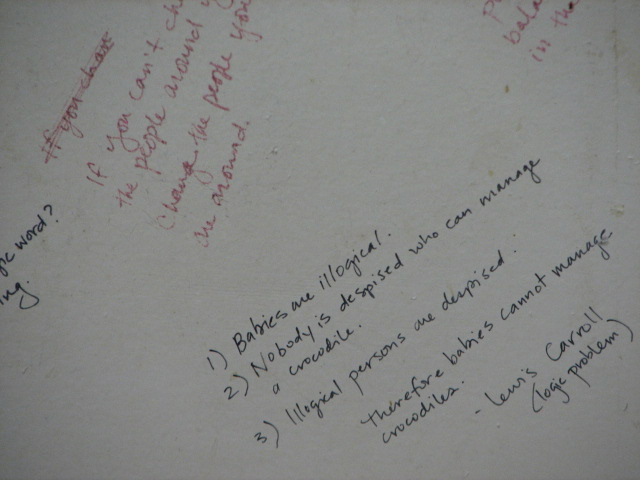 If you chan
If you can't ch
the people around y
Change the people you
are around.
bala
in the
word?
ing.
1) Babies are illogical.
2) Nobody is despised who can manage
a crocodile.
3) Illogical persons are despised.
Therefore babies cannot manage
crocodiles.
- Lewis Carroll
(logic problem)